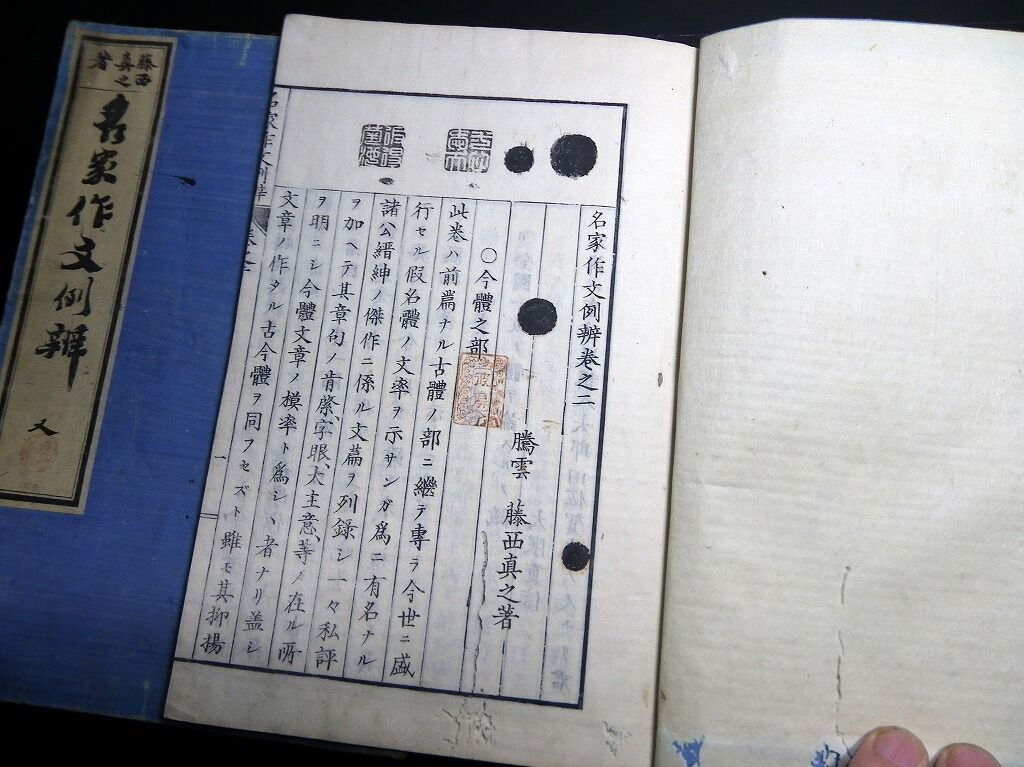 名家作文例辨卷之二
騰雲　藤西真之著
〇今體之部
此巻ハ前篇ナル古體ノ部ニ繼テ專ラ今世ニ盛
行セル假名體ノ文率ヲ示サンガ爲ニ有名ナル
諸公縉紳ノ傑作ニ係ル文篇ヲ列録シ一々私評
ヲ加ヘテ其章句ノ肯綮、字眼、大主意、等ノ在ル所
ヲ明ニシ今體文章ノ模率ト爲シヽ者ナリ盖シ
文章ノ作タル古今體ヲ同フセズト雖モ其抑揚
一
名家作文例辨
藤西真之著
名家作文例辨